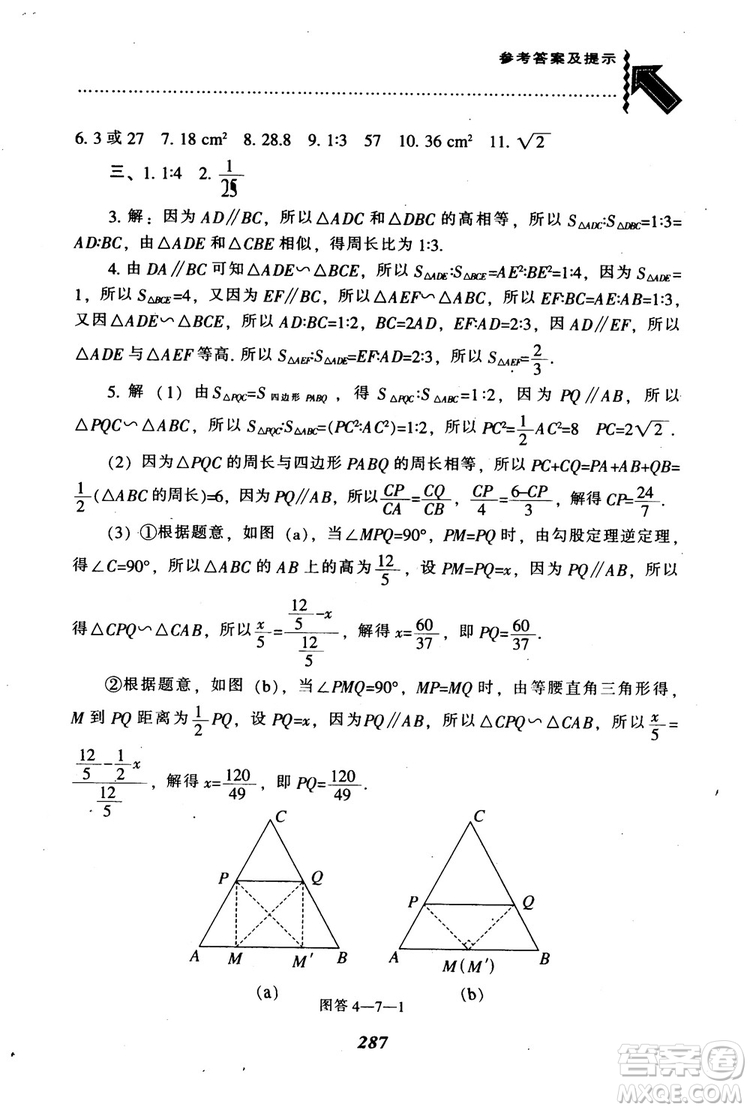 参考答案及提示
6. 3 或 27 7. 18 cm² 8. 28.8 9. 1∶3 57 10. 36 cm² 11. √2
三、1. 1∶4 2. 1/25
3. 解：因为 AD∥BC，所以△ADC 和△DBC 的高相等，所以 S△ADC∶S△DBC=1∶3=
AD∶BC，由△ADE 和△CBE 相似，得周长比为 1∶3.
4. 由 DA∥BC 可知△ADE∽△BCE，所以 S△ADE∶S△BCE=AE²∶BE²=1∶4，因为 S△ADE=
1，所以 S△BCE=4，又因为 EF∥BC，所以△AEF∽△ABC，所以 EF∶BC=AE∶AB=1∶3，
又因为△ADE∽△BCE，所以 AD∶BC=1∶2，BC=2AD，EF∶AD=2∶3，因为 AD∥EF，所以
△ADE 与△AEF 等高. 所以 S△AEF∶S△ADE=EF∶AD=2∶3，所以 S△AEF=2/3.
5. 解（1）由 S△PQC=S四边形 PABQ，得 S△PQC∶S△ABC=1∶2，因为 PQ∥AB，所以
△PQC∽△ABC，所以 S△PQC∶S△ABC=(PC²∶AC²)=1∶2，所以 PC²=1/2 AC²=8 PC=2√2.
(2) 因为△PQC 的周长与四边形 PABQ 的周长相等，所以 PC+CQ=PA+AB+QB=
1/2(△ABC 的周长)=6，因为 PQ∥AB，所以 CP/CA=CQ/CB，CP/4=(6-CP)/3，解得 CP=24/7.
(3) ①根据题意，如图（a），当∠MPQ=90°，PM=PQ 时，由勾股定理逆定理，
得∠C=90°，所以△ABC 的 AB 上的高为 12/5，设 PM=PQ=x，因为 PQ∥AB，所以
得△CPQ∽△CAB，所以 x/5=(12/5-x)/(12/5)，解得 x=60/37，即 PQ=60/37.
②根据题意，如图（b），当∠PMQ=90°，MP=MQ 时，由等腰直角三角形得，
M 到 PQ 距离为 1/2 PQ，设 PQ=x，因为 PQ∥AB，所以△CPQ∽△CAB，所以 x/5=
(12/5-1/2 x)/(12/5)，解得 x=120/49，即 PQ=120/49.
C
P Q
A M M′ B
(a)
C
P Q
A M(M′) B
(b)
图答 4—7—1
287
答案圈
MXQE.COM